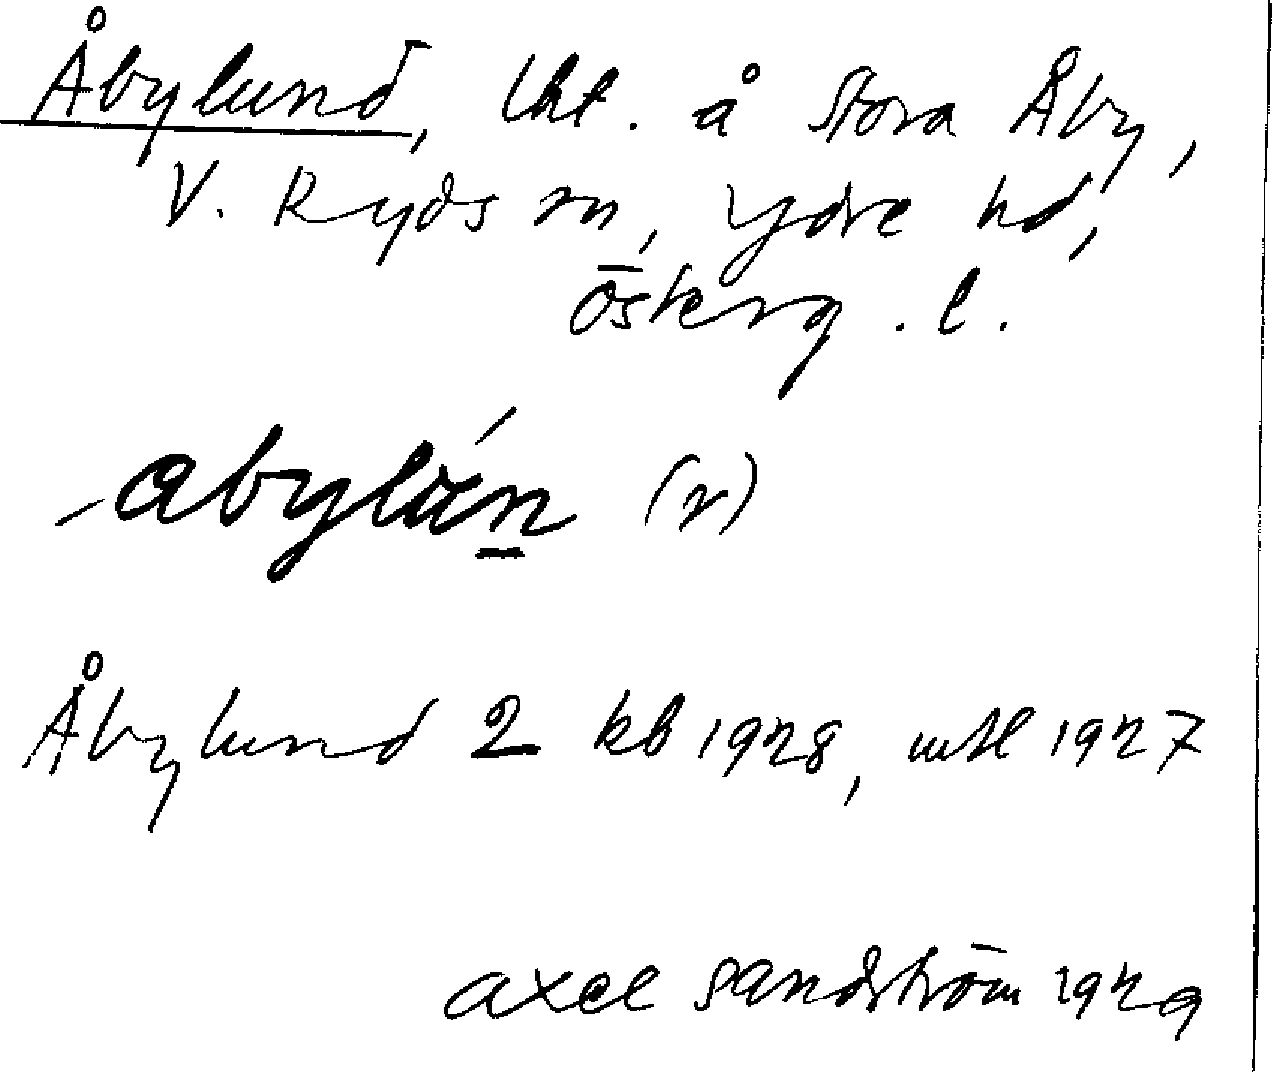 Åbylund, lht. å Stora Åby,
V. Ryds sn, Ydre hd,
Österg. l.
abylún (r)
Åbylund 2 kb 1928, mtl 1927
Axel Sandström 1929